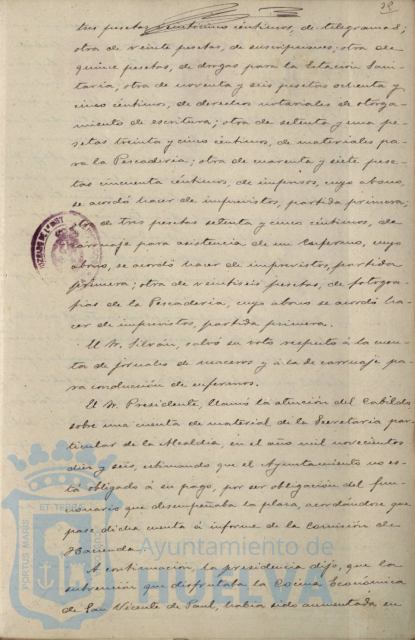 32
tres pesetas veinticinco céntimos, de telegramas;
otra de veinte pesetas, de suscripciones; otra de
quince pesetas, de drogas para la Estación Sani-
taria, otra de noventa y seis pesetas ochenta y
cinco céntimos, de derechos notariales de otorga-
miento de escritura; otra de setenta y una pe-
setas treinta y cinco céntimos, de materiales pa-
ra la Pescadería; otra de cuarenta y siete pese-
tas cincuenta céntimos, de impresos, cuyo abono,
se acordó hacer de imprevistos, partida primera;
de tres pesetas setenta y cinco céntimos, de
carruaje para asistencia de un enfermo, cuyo
abono, se acordó hacer de imprevistos, partida
primera; otra de veintiseis pesetas, de fotogra-
fías de la Pescadería, cuyo abono se acordó ha-
cer de imprevistos, partida primera.
El Sr. Silván, salvó su voto respecto á la cuen-
ta de jornales de maceros y á la de carruaje pa-
ra conducción de enfermos.
El Sr. Presidente, llamó la atención del Cabildo
sobre una cuenta de material de la Secretaría par-
ticular de la Alcaldía, en el año mil novecientos
diez y seis, estimando que el Ayuntamiento no es-
tá obligado á su pago, por ser obligación del fun-
cionario que desempeñaba la plaza, acordándose que
pase dicha cuenta á informe de la Comisión de
Hacienda.
A continuación, la presidencia dijo, que la
subvención que disfrutaba la Cocina Económica
de San Vicente de Paul, había sido aumentada en
PORTUS MARIS ET TERRÆ
Ayuntamiento de
HUELVA